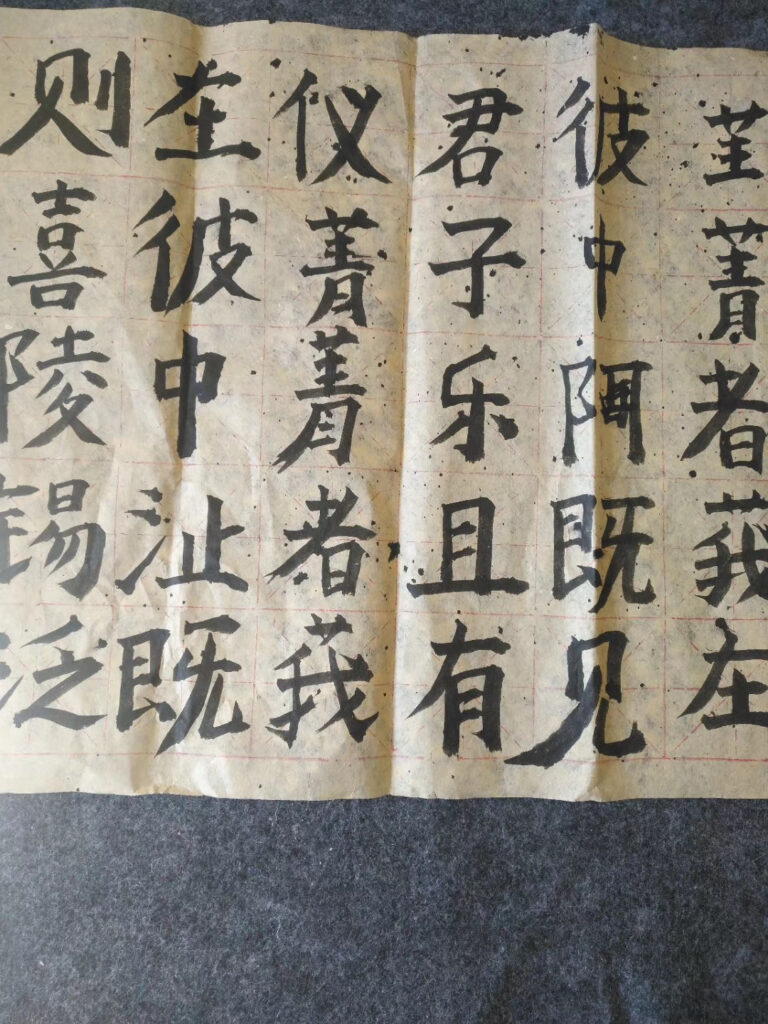 菁者莪在
彼中阿既见
君子乐且有
仪菁菁者莪
在彼中沚既
则喜陵锡泛